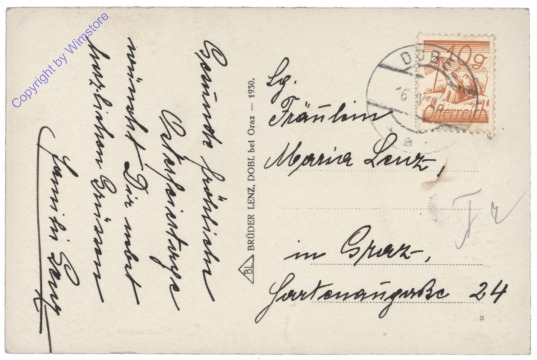 Copyright by Wimstore
Gesunde fröhliche
Osterfeiertage
wünscht Dir nebst
herzlichen Grüssen
Familie Lenz
BL BRÜDER LENZ, DOBL bei Graz — 1930.
DOBL
10g
Österreich
Sg.
Fräulein
Maria Lenz,
in Graz,
Gartenaugaße 24
a